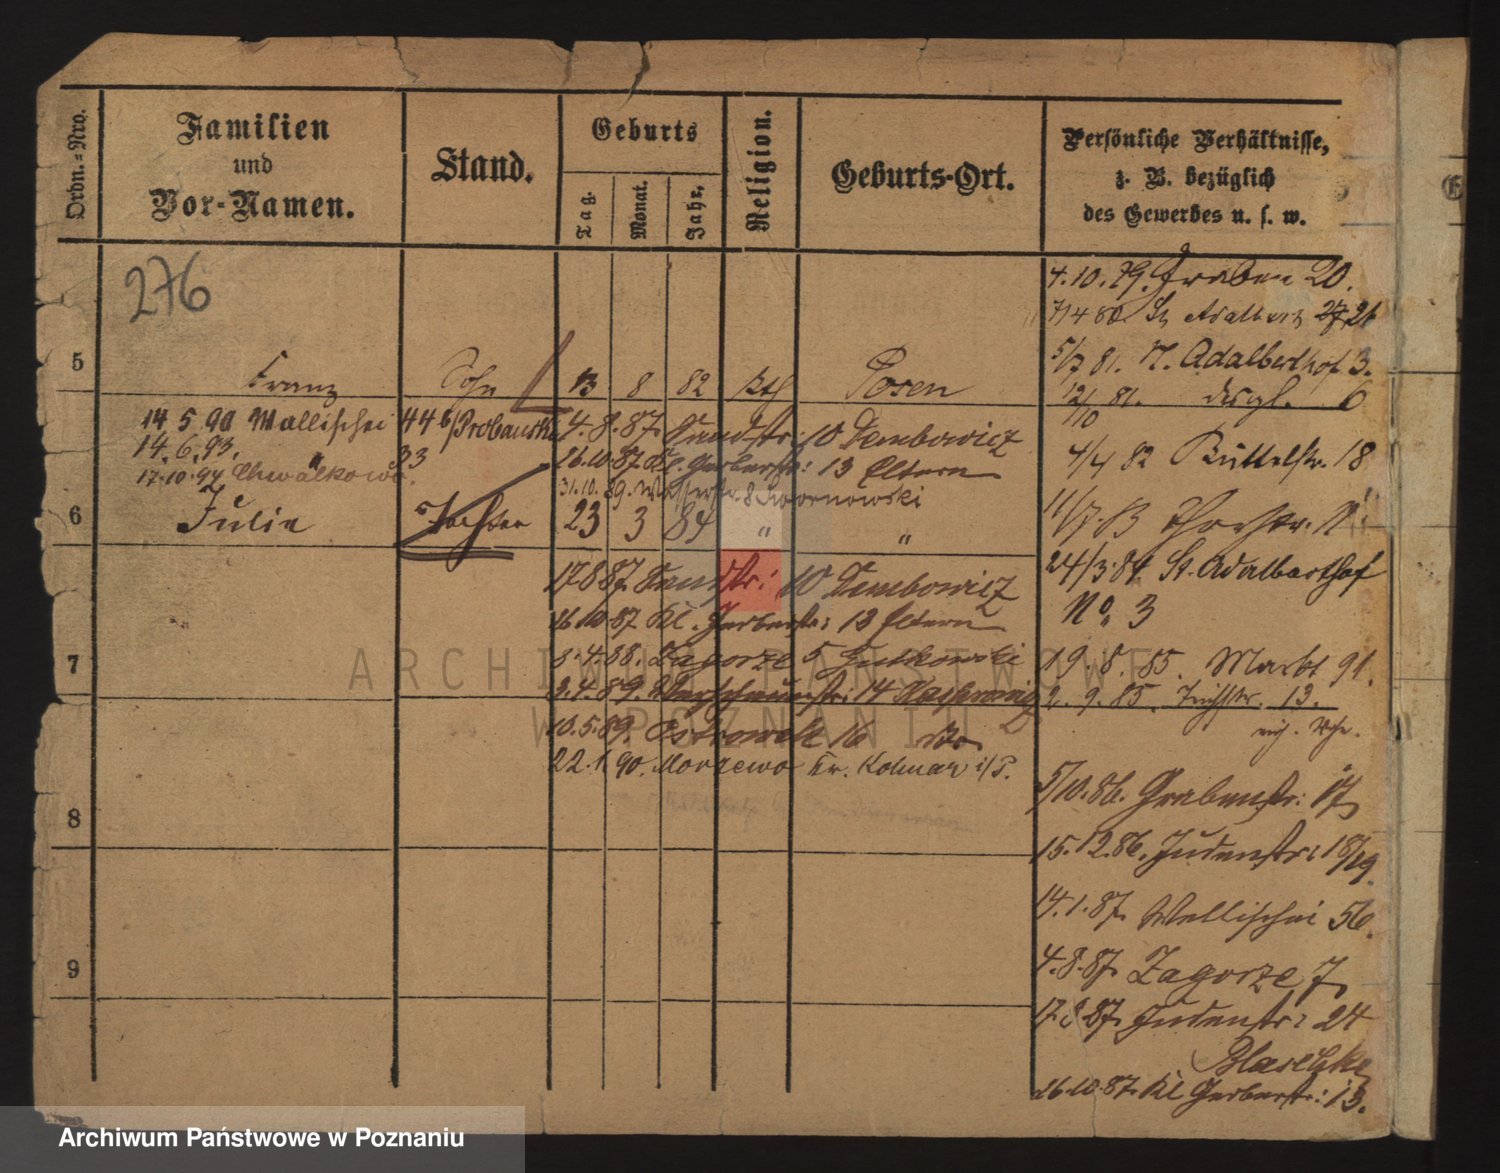 Ordn.=Nro.
Familien
und
Vor-Namen.
Stand.
Geburts
Tag.
Monat.
Jahr,
Religion.
Geburts-Ort.
Persönliche Verhältnisse,
z. B. bezüglich
des Gewerbes u. s. w.
276
4. 10. 79. Graben 20.
7/4 80. St Adalbert 27, 21
5/7 81. N. Adalberthof 3.
12/10 81. desgl. 6
5
Franz Sohn 13 8 82 Kth Posen
14 5. 90 Wallischei 446/ 4. 8. 87. Sandstr: 10 Dembowicz
14. 6. 93. " 33 26.10.87 Kl. Gerberstr: 13 Eltern
17.10.94 Chwalkowo. 31. 10. 89. Wasserstr. 8
4/4 82 Büttelstr. 18
6
Julie Tochter 23 3 84 " "
11/7. 83
24/3. 84. St. Adalberthof
No. 3
17 8 87. Sandstr: 10 Dembowicz
26 10 87 Kl. Gerberstr: 13 Eltern
7
3. 4. 88. Zagorze 5 Gutkowski
3. 4. 89. 14
19. 8. 85. Markt 91.
2. 9. 85. 13.
10. 5. 89. Ostrowek 16
22. 1. 90. Morzewo Kr. Kolmar i/P.
ARCHIWUM PAŃSTWOWE
W POZNANIU
5/10. 86. Grabenstr: 17
8
15. 12. 86. Judenstr: 18/19.
14. 1. 87. Wallischei 56.
9
4. 8. 87. Zagorze 7,
17. 8 87. Judenstr: 24
Blaschke
26. 10. 87. Kl Gerberstr: 13.
Archiwum Państwowe w Poznaniu